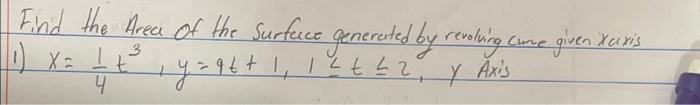 Find the Area of the Surface generated by revolving curve given x axis
1) x = 1/4 t³, y = 9t + 1, 1 ≤ t ≤ 2, y Axis